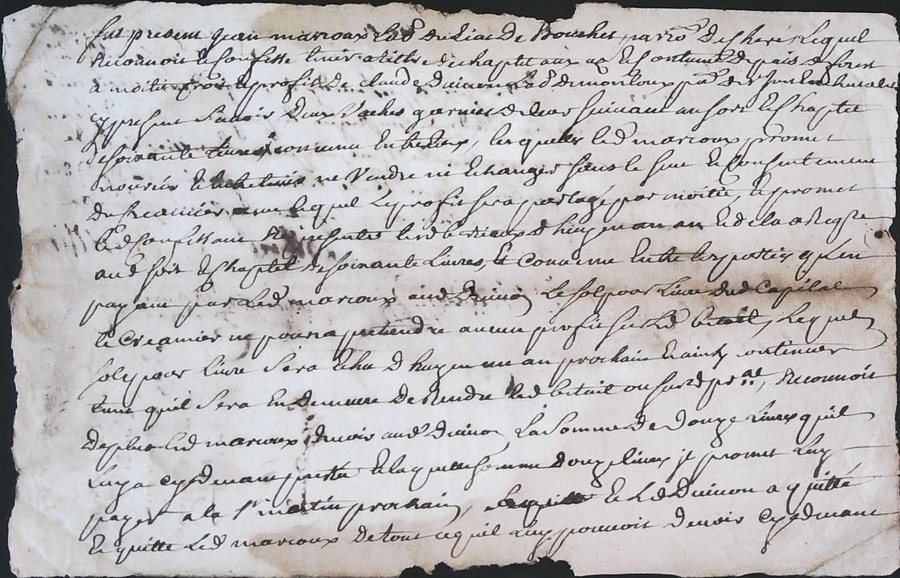 fut present Jean marcoux Lab. du Lieu de Bouchet, parr. de Lequel
Reconnoit et Confesse tenir a titre de chaptel aux us et Coutume du pais de forest
a moitié profit de claude Duinon Lab. de
present Scavoir Deux Vaches garnies de leur Suivant au sort et Chaptel
de soixante Livres convenu Entre Eux, lesquelles led marcoux promet
nourrir et ne Vendre ni Echanger sans le sceu et Consentement
du Creancier lequel Le profit sera partagé par moitié, et promet
led Confessant led d'huy en un an et de la a Requeste
aud sort et Chaptel de soixante Livres, Et Convenu Entre les parties qu'en
payant par Led marcoux aud Duinon Le sol pour Livre dud Capital
le Creancier ne pourra pretendre aucun profit sur led betail, Lequel
sol pour Livre sera Echu d'huy en un an prochain Et ainsy continuer
tant quil sera En Demeure De Rendre led betail ou sort, Reconnoit
Deplus led marcoux devoir aud Duinon La somme de Douze Livres quil
Luy a cydevant presté Et laquelle somme Douze livres je promet Luy
payer a la St martin prochain, Et Led Duinon a quitté
et quitte Led marcoux De tout ce quil Luy pouvoit Devoir cydevant